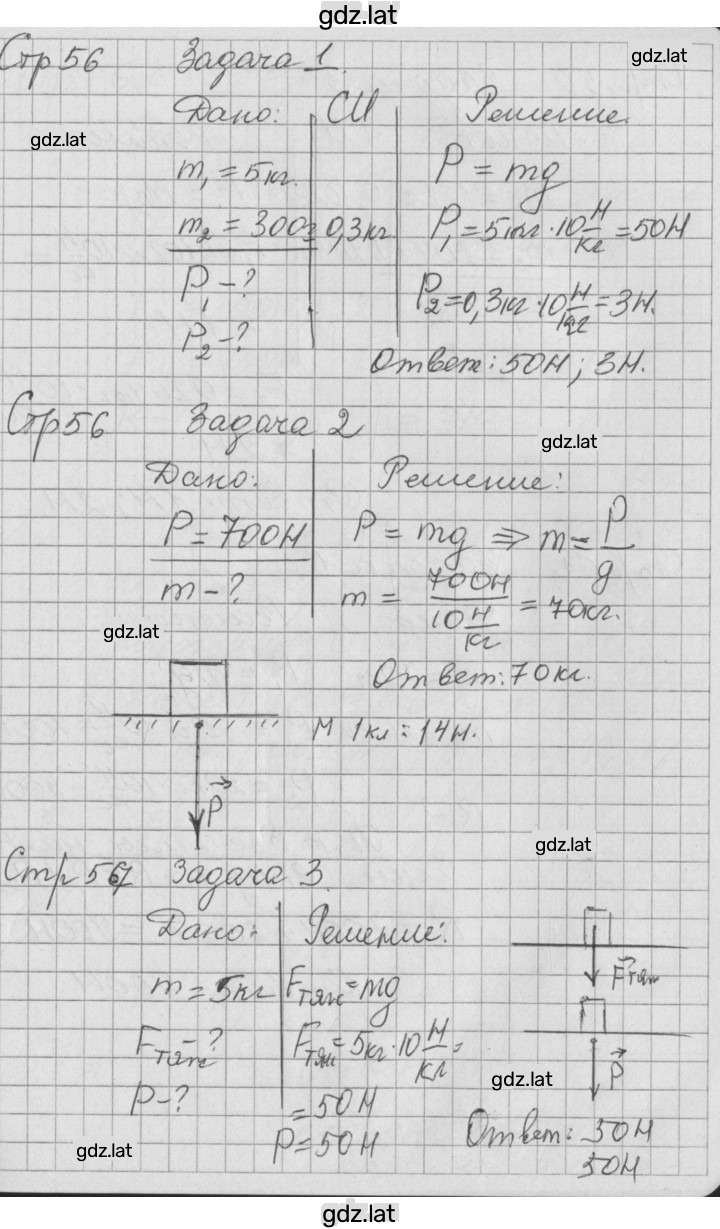 gdz.lat
Стр 56 Задача 1.
gdz.lat
Дано: СИ Решение.
gdz.lat
m₁ = 5кг. P = mg
m₂ = 300г 0,3кг. P₁ = 5кг · 10 Н/кг = 50Н
P₁ - ? P₂ = 0,3кг · 10 Н/кг = 3Н.
P₂ - ?
Ответ: 50Н; 3Н.
Стр 56 Задача 2
gdz.lat
Дано: Решение:
P = 700Н P = mg ⇒ m = P/g
m - ? m = 700Н / 10 Н/кг = 70кг.
gdz.lat
Ответ: 70кг.
М 1кл = 14Н.
P
gdz.lat
Стр 567 Задача 3.
Дано: Решение:
m = 5кг Fтяж = mg
Fтяж
Fтяж - ? Fтяж = 5кг · 10 Н/кг =
P
gdz.lat
P - ? = 50Н
P = 50Н
Ответ: 50Н
50Н
gdz.lat
gdz.lat